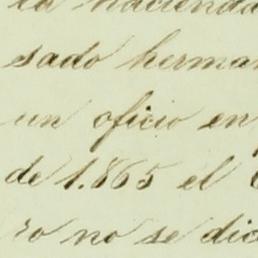 la hacienda
sado herma
un oficio en
de 1.865 el
ro no se dic